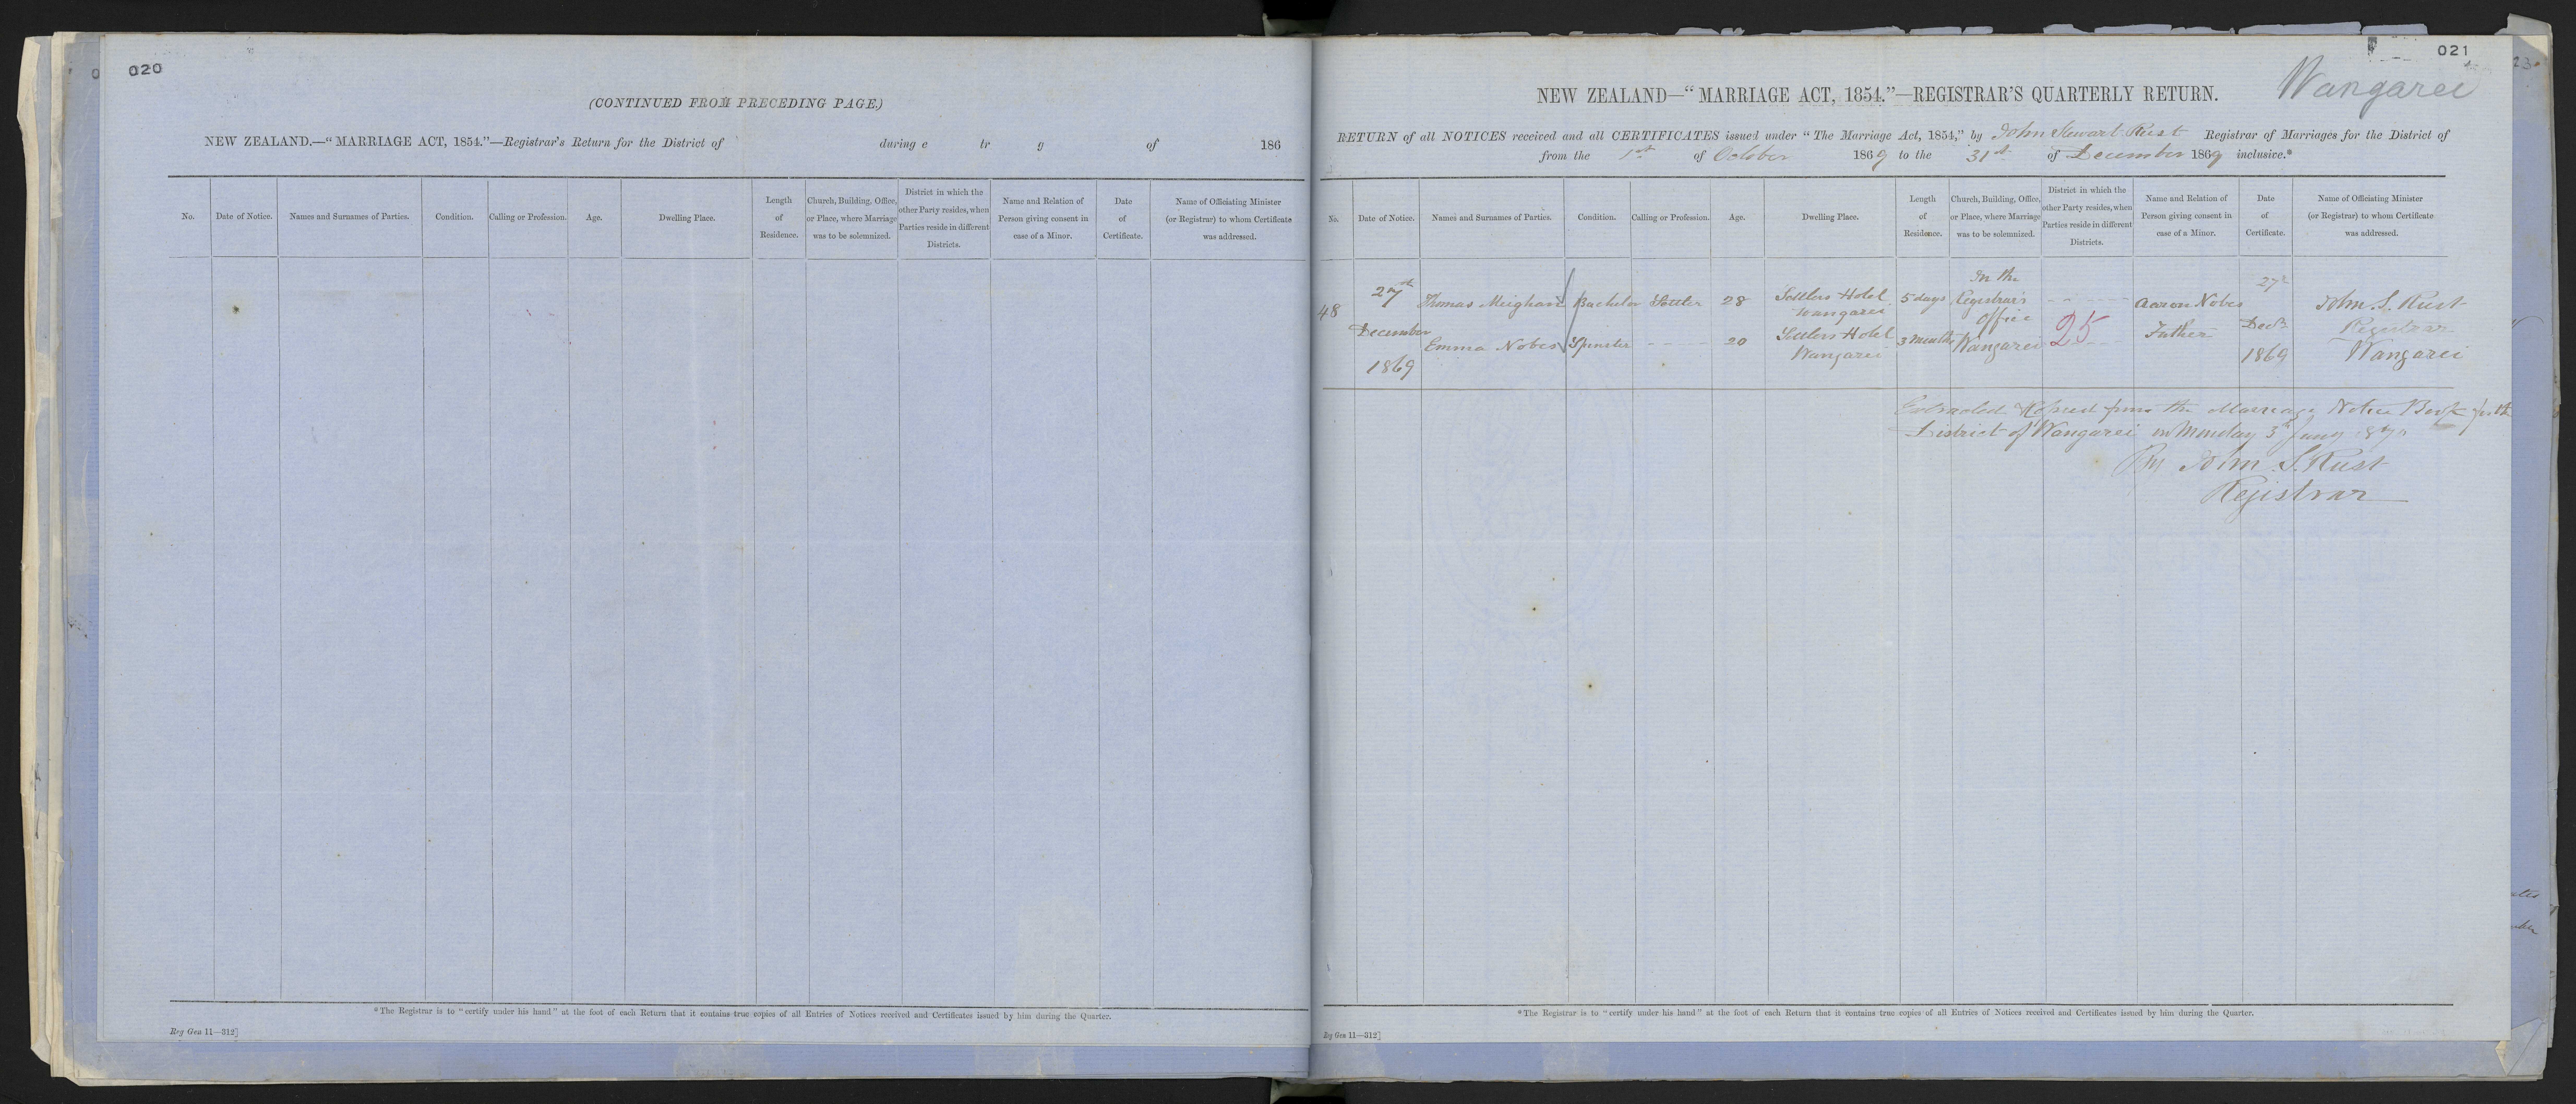 020
(CONTINUED FROM PRECEDING PAGE.)
NEW ZEALAND.—“MARRIAGE ACT, 1854.”—Registrar's Return for the District of during e tr g of 186
No. Date of Notice. Names and Surnames of Parties. Condition. Calling or Profession. Age. Dwelling Place. Length of Residence. Church, Building, Office, or Place, where Marriage was to be solemnized. District in which the other Party resides, when Parties reside in different Districts. Name and Relation of Person giving consent in case of a Minor. Date of Certificate. Name of Officiating Minister (or Registrar) to whom Certificate was addressed.
*The Registrar is to “certify under his hand” at the foot of each Return that it contains true copies of all Entries of Notices received and Certificates issued by him during the Quarter.
Reg Gen 11—312]
021
Wangarei
NEW ZEALAND—“MARRIAGE ACT, 1854.”—REGISTRAR'S QUARTERLY RETURN.
RETURN of all NOTICES received and all CERTIFICATES issued under “The Marriage Act, 1854,” by John Stewart Rust Registrar of Marriages for the District of
from the 1st of October 1869 to the 31st of December 1869 inclusive.*
No. Date of Notice. Names and Surnames of Parties. Condition. Calling or Profession. Age. Dwelling Place. Length of Residence. Church, Building, Office, or Place, where Marriage was to be solemnized. District in which the other Party resides, when Parties reside in different Districts. Name and Relation of Person giving consent in case of a Minor. Date of Certificate. Name of Officiating Minister (or Registrar) to whom Certificate was addressed.
48 27th December 1869
Thomas Meighan Bachelor Settler 28 Settlers Hotel Wangarei 5 days
Emma Nobes Spinster 20 Settlers Hotel Wangarei 3 months
In the Registrar's Office Wangarei
25
Aaron Nobes Father
27 Decr 1869
John S. Rust Registrar Wangarei
Extracted & Copied from the Marriage Notice Book for the
District of Wangarei on Monday 3rd Jany 1870
By John S. Rust
Registrar
*The Registrar is to “certify under his hand” at the foot of each Return that it contains true copies of all Entries of Notices received and Certificates issued by him during the Quarter.
Reg Gen 11—312]